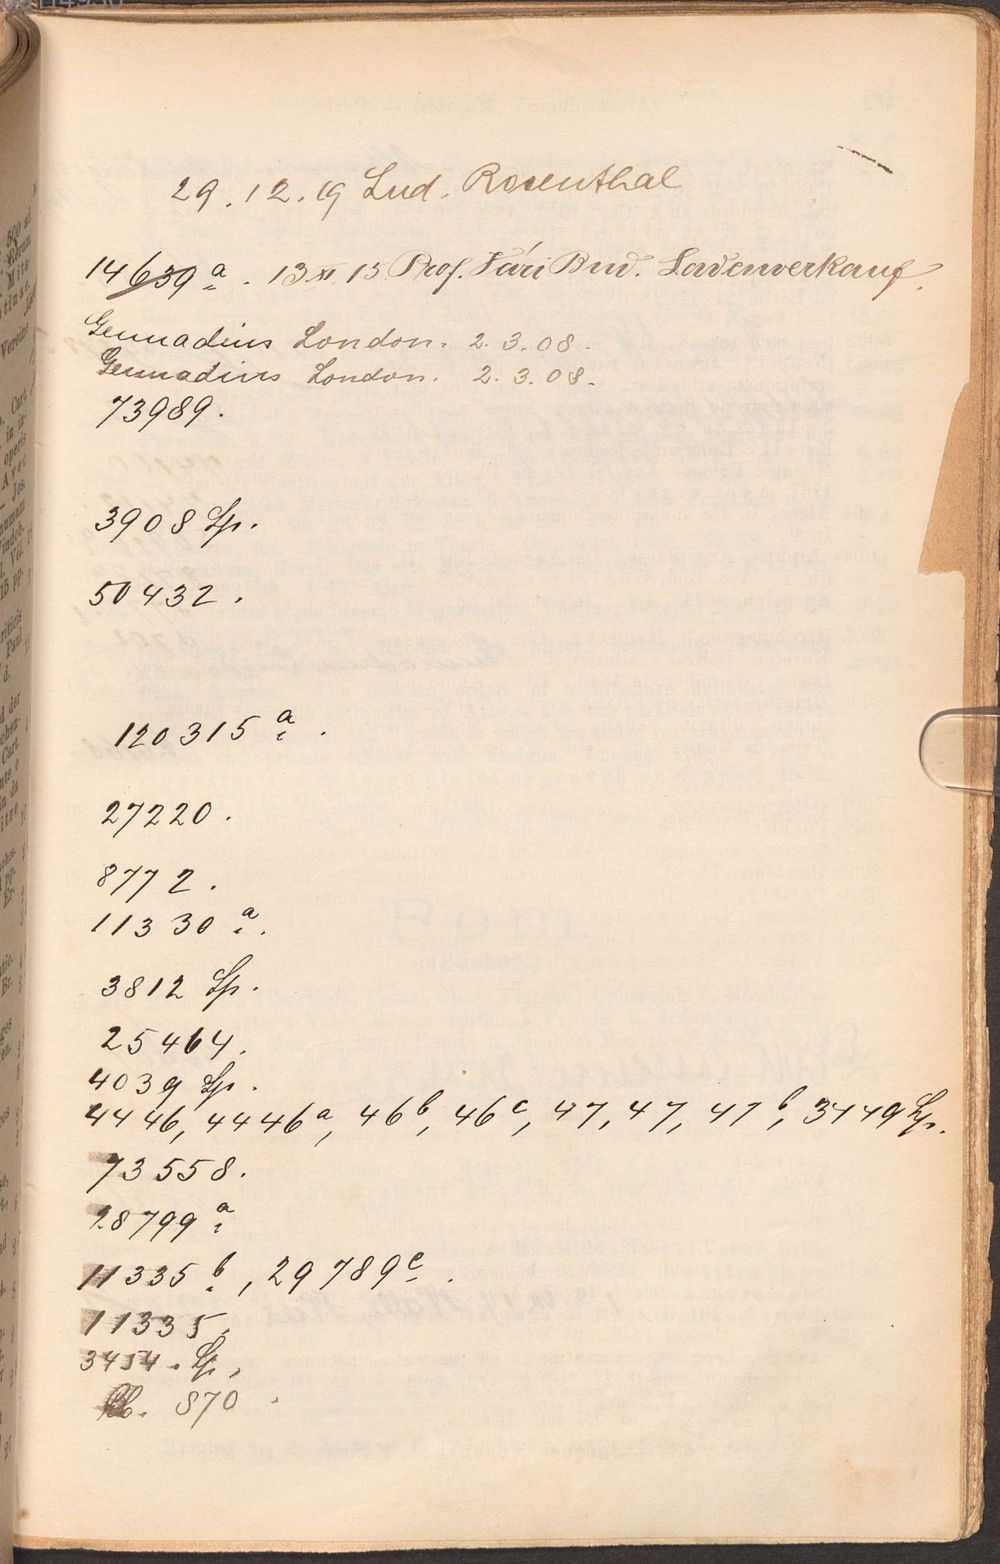 29. 12. 19 Lud. Rosenthal
14639 a. 13. XI 15 Prof. Vári Bud. Ladenverkauf.
Gennadius London. 2. 3. 08.
Gennadius London. 2. 3. 08.
73989.
3908 Sp.
50432.
120315 a.
27220.
8772.
11330 a.
3812 Sp.
25464.
4039 Sp.
4446, 4446a, 46b, 46c, 47, 47, 47b, 3449 Sp.
73558.
28799 a
11335 b, 29789 c.
11335.
3454. Sp.
870